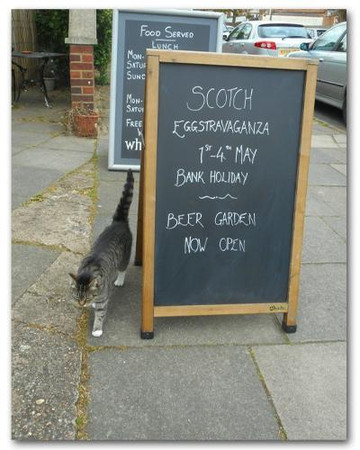 FOOD SERVED
LUNCH
MON-
SATU
SUND
MON-
SATU
FREE
wh
SCOTCH
EGGSTRAVAGANZA
1ST-4TH MAY
BANK HOLIDAY
BEER GARDEN
NOW OPEN